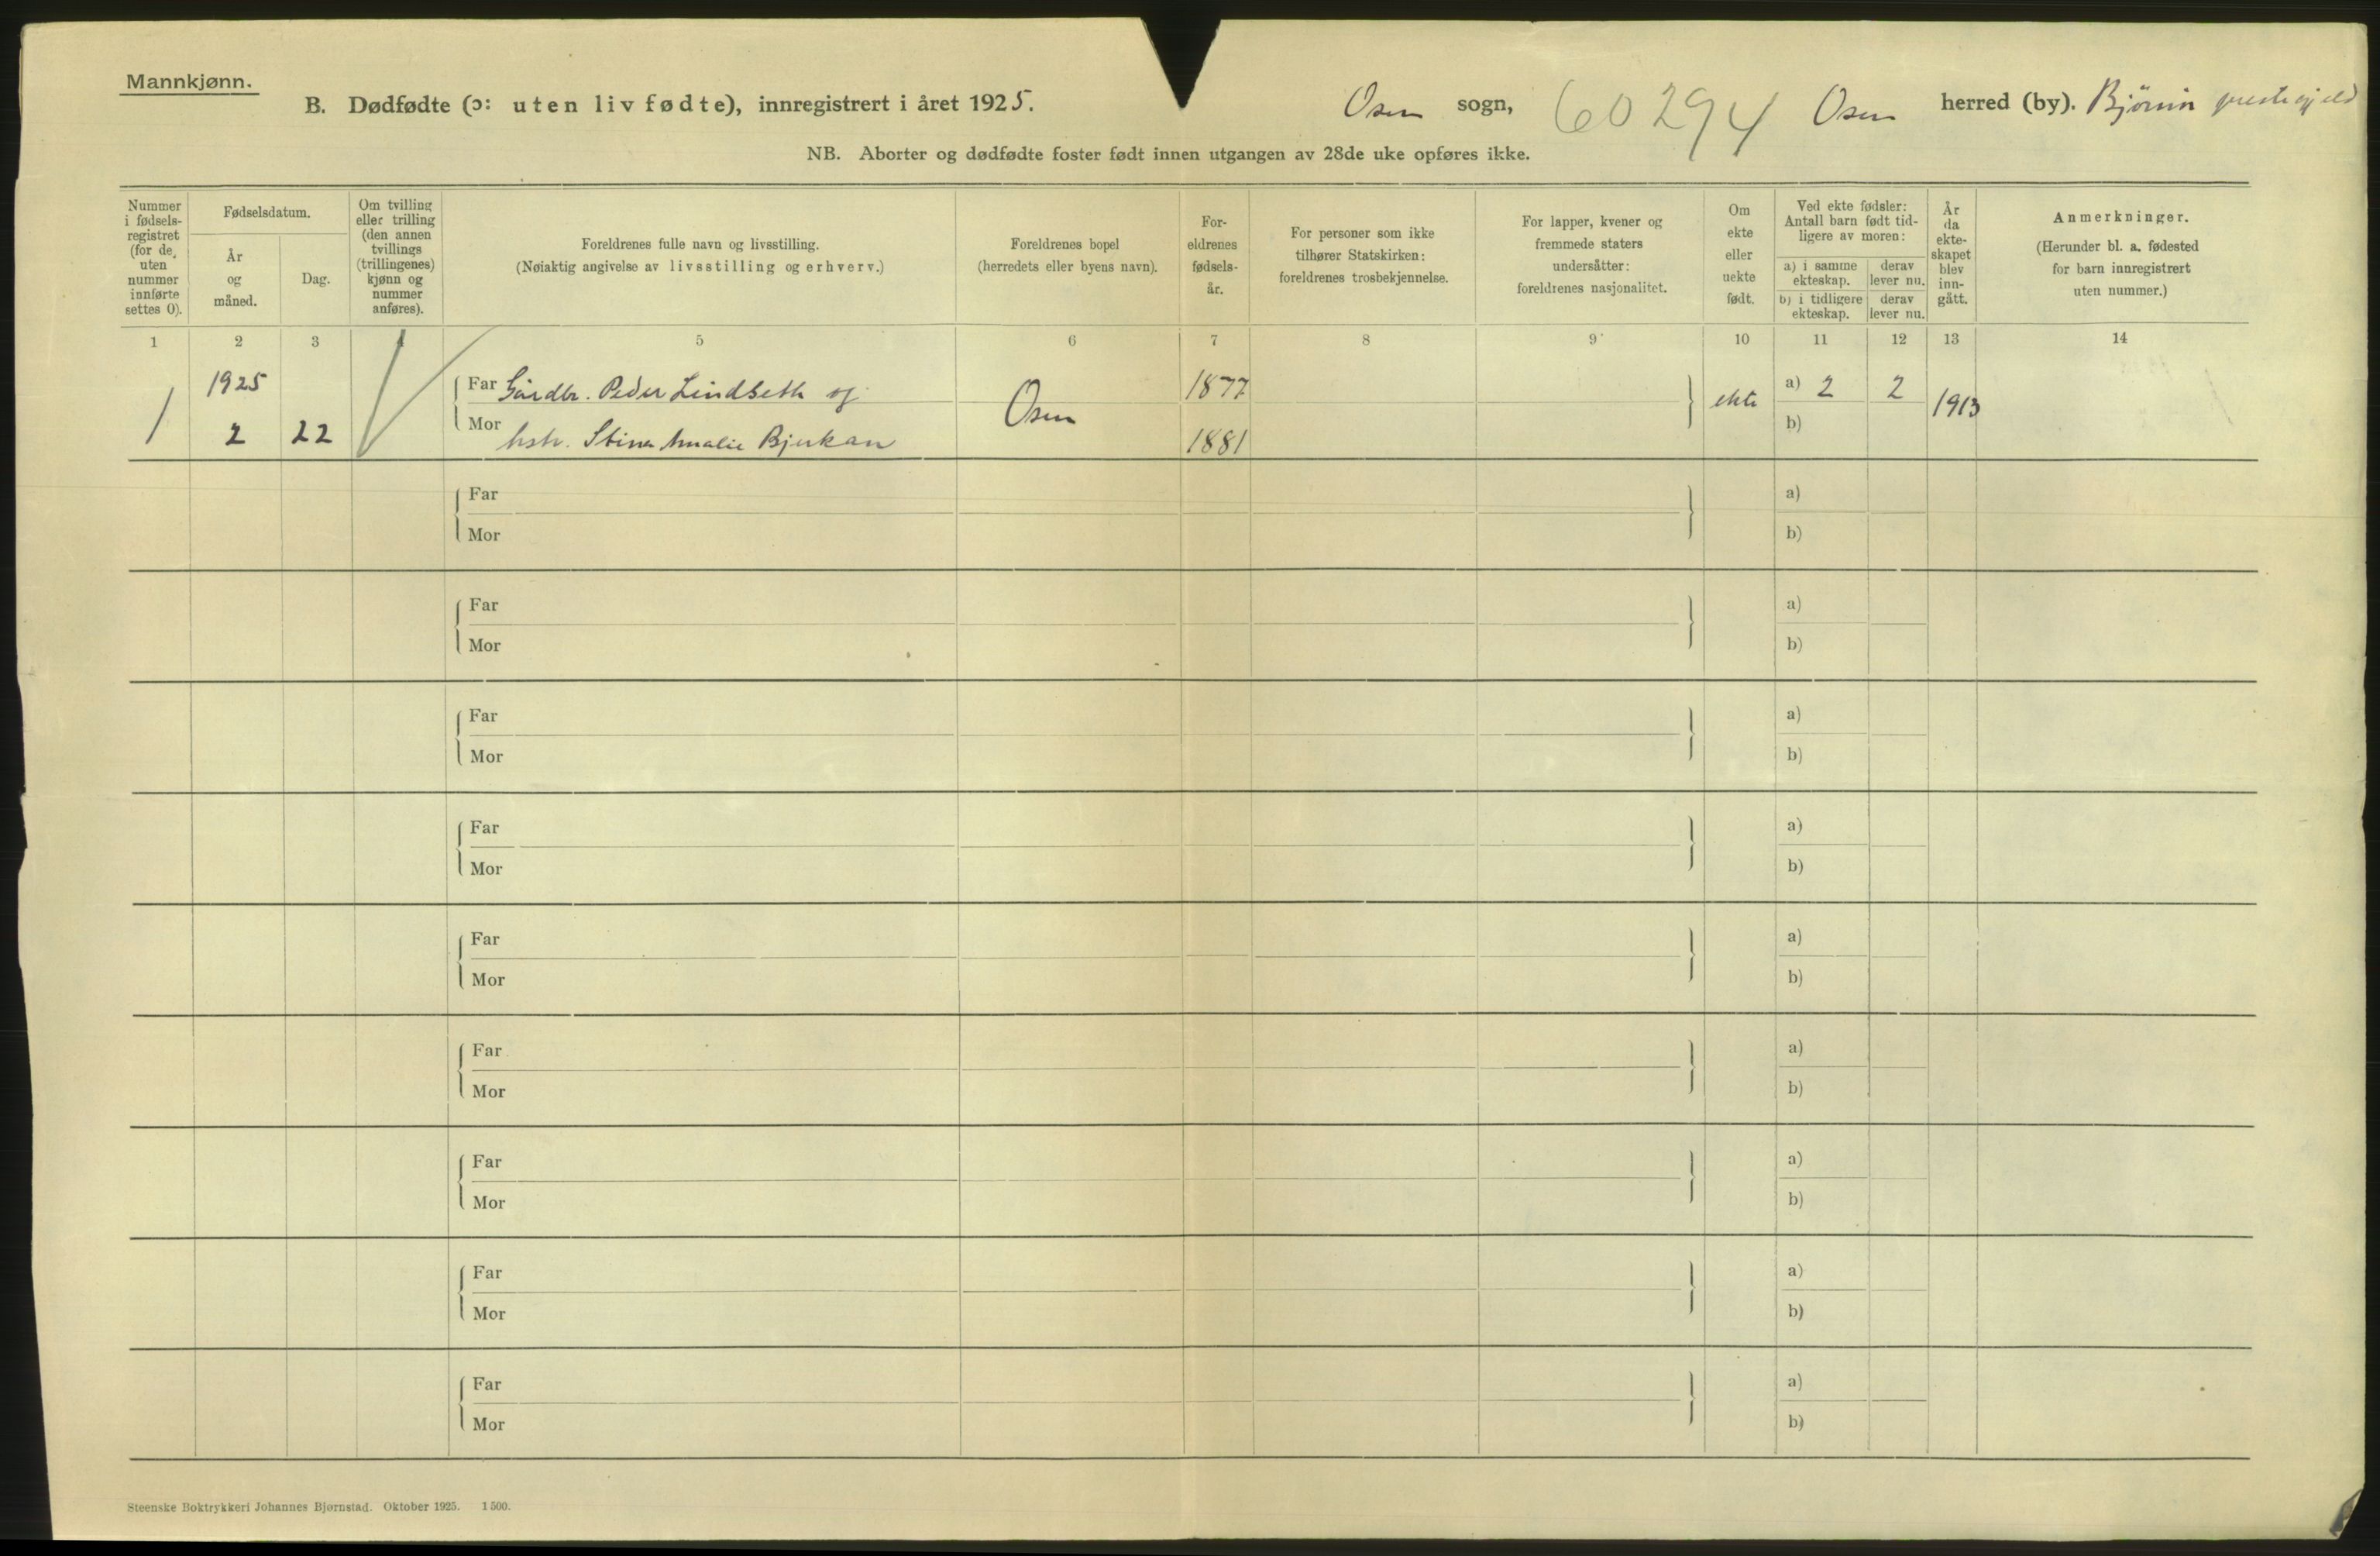 Mannkjønn.
B. Dødfødte (ɔ: uten liv fødte), innregistrert i året 1925.
Osen sogn, 60294 Osen herred (by). Bjørnør prestegjeld
NB. Aborter og dødfødte foster født innen utgangen av 28de uke opføres ikke.
Nummer i fødselsregistret (for de, uten nummer innførte settes 0).
Fødselsdatum.
År og måned.
Dag.
Om tvilling eller trilling (den annen tvillings (trillingenes) kjønn og nummer anføres).
Foreldrenes fulle navn og livsstilling.
(Nøiaktig angivelse av livsstilling og erhverv.)
Foreldrenes bopel
(herredets eller byens navn).
Foreldrenes fødselsår.
For personer som ikke tilhører Statskirken: foreldrenes trosbekjennelse.
For lapper, kvener og fremmede staters undersåtter: foreldrenes nasjonalitet.
Om ekte eller uekte født.
Ved ekte fødsler: Antall barn født tidligere av moren:
a) i samme ekteskap.
derav lever nu.
b) i tidligere ekteskap.
derav lever nu.
År da ekteskapet blev inngått.
Anmerkninger.
(Herunder bl. a. fødested for barn innregistrert uten nummer.)
1 2 3 4 5 6 7 8 9 10 11 12 13 14
1925 Far Gårdbr. Peder Lindseth og 1877 a) 2 2
1 Osen ekte 1913
2 22 Mor hstr. Stina Amalie Bjerkan 1881 b)
Far a)
Mor b)
Far a)
Mor b)
Far a)
Mor b)
Far a)
Mor b)
Far a)
Mor b)
Far a)
Mor b)
Far a)
Mor b)
Far a)
Mor b)
Far a)
Mor b)
Steenske Boktrykkeri Johannes Bjørnstad. Oktober 1925. 1500.